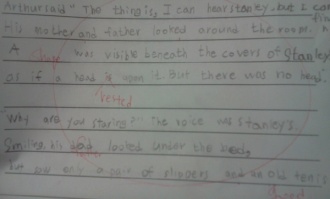 Arthur said " The thing is, I can hear stanley, but I can
find
His mother and father looked around the room.
A Shape was visible beneath the covers of Stanley
as if a head is upon it. But there was no head.
rested
Why are you staring?" The voice was Stanley's.
Smiling, his dad looked under the bed,
but saw only a pair of slippers and an old tenis